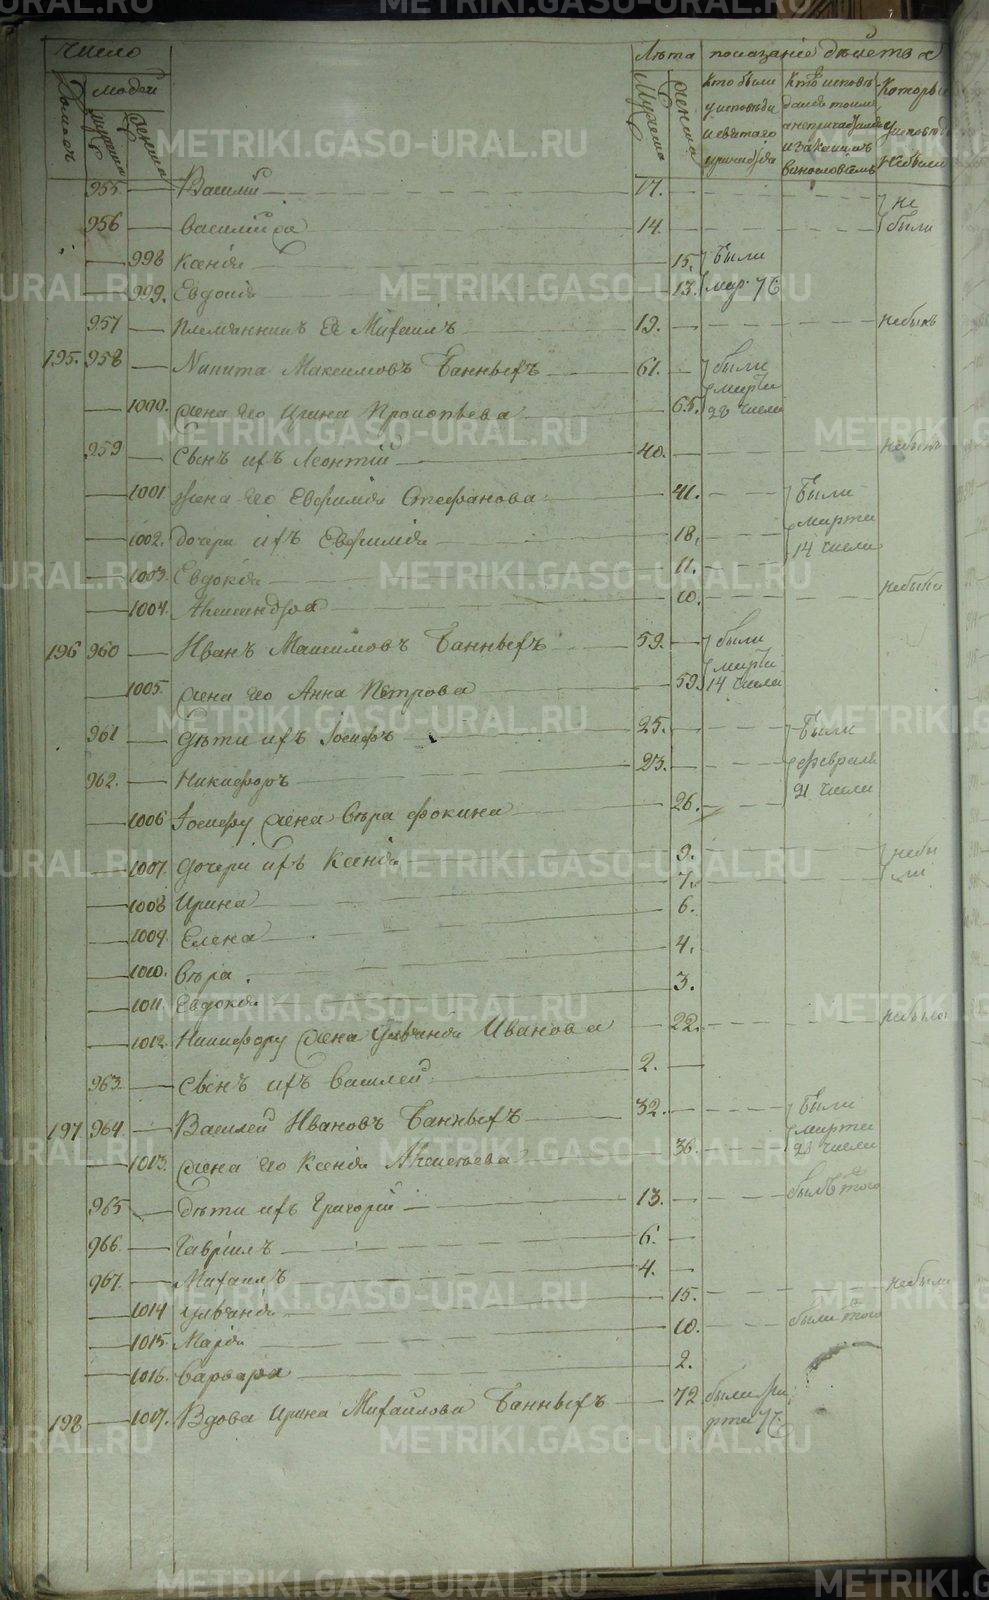 Число Лѣта показаніе дѣйства
Домовъ Людей Мужеска Женска Кто были у исповѣди и святаго причастія Кто исповѣдался токмо а не причастился и за какимъ винословіемъ Которые у исповѣди не были
мужеска женска
955. Василій 17. не были
956 Василій 14.
998 Ксенія 15. были
999. Евдокія 13. мар. 7
957 племянникъ ея Михаилъ 19. небылъ
195. 958 Никита Максимовъ Банныхъ 61. были марта 28 числа
1000. Жена его Ирина Прокопьева 65.
959 Сынъ ихъ Леонтій 40. небылъ
1001 Жена его Евфимія Стефанова 41. были марта 14 числа
1002. дочери ихъ Евфимія 18.
1003. Евдокія 11.
1004. Александра 10. небыли
196 960 Иванъ Максимовъ Банныхъ 59. были марта 14 числа
1005. Жена его Анна Петрова 59.
961 Дѣти ихъ Іосифъ 25. были февраля 21 числа
962. Никифоръ 23.
1006 Іосифу Жена Вѣра Фокина 26.
1007. дочери ихъ Ксенія 9. небыли
1008 Ирина 7.
1009. Елена 6.
1010. Вѣра 4.
1011. Евдокія 3.
1012. Никифору Жена Иванова 22. небыла
963. Сынъ ихъ Василей 2.
197. 964. Василей Ивановъ Банныхъ 32. были марта 23 числа
1013. Жена его Ксенія Алексѣева 36.
965 Дѣти ихъ Григорій 13. былъ того
966. Гавріилъ 6.
967. Михаилъ 4.
1014 15. небыли
1015. Марія 10. были того
1016. Варвара 2.
198 1017. Вдова Ирина Михайлова Банныхъ 72 были марта 7
METRIKI.GASO-URAL.RU